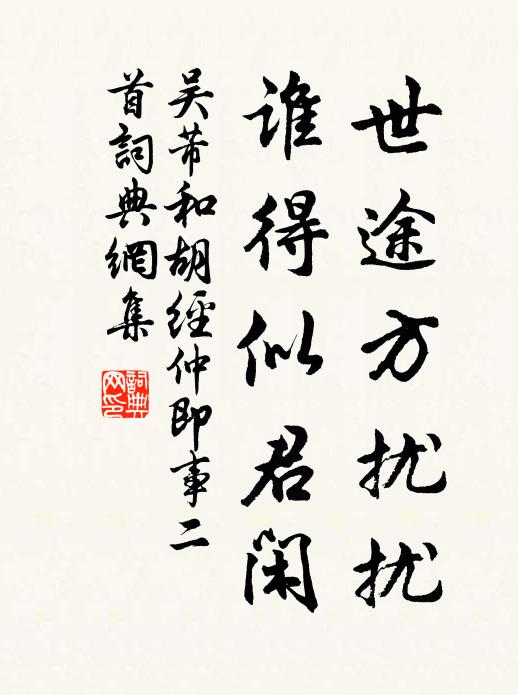 世途方扰扰
谁得似君闲
吴芾和胡經仲即事二
首詞典網集
詞典
网印